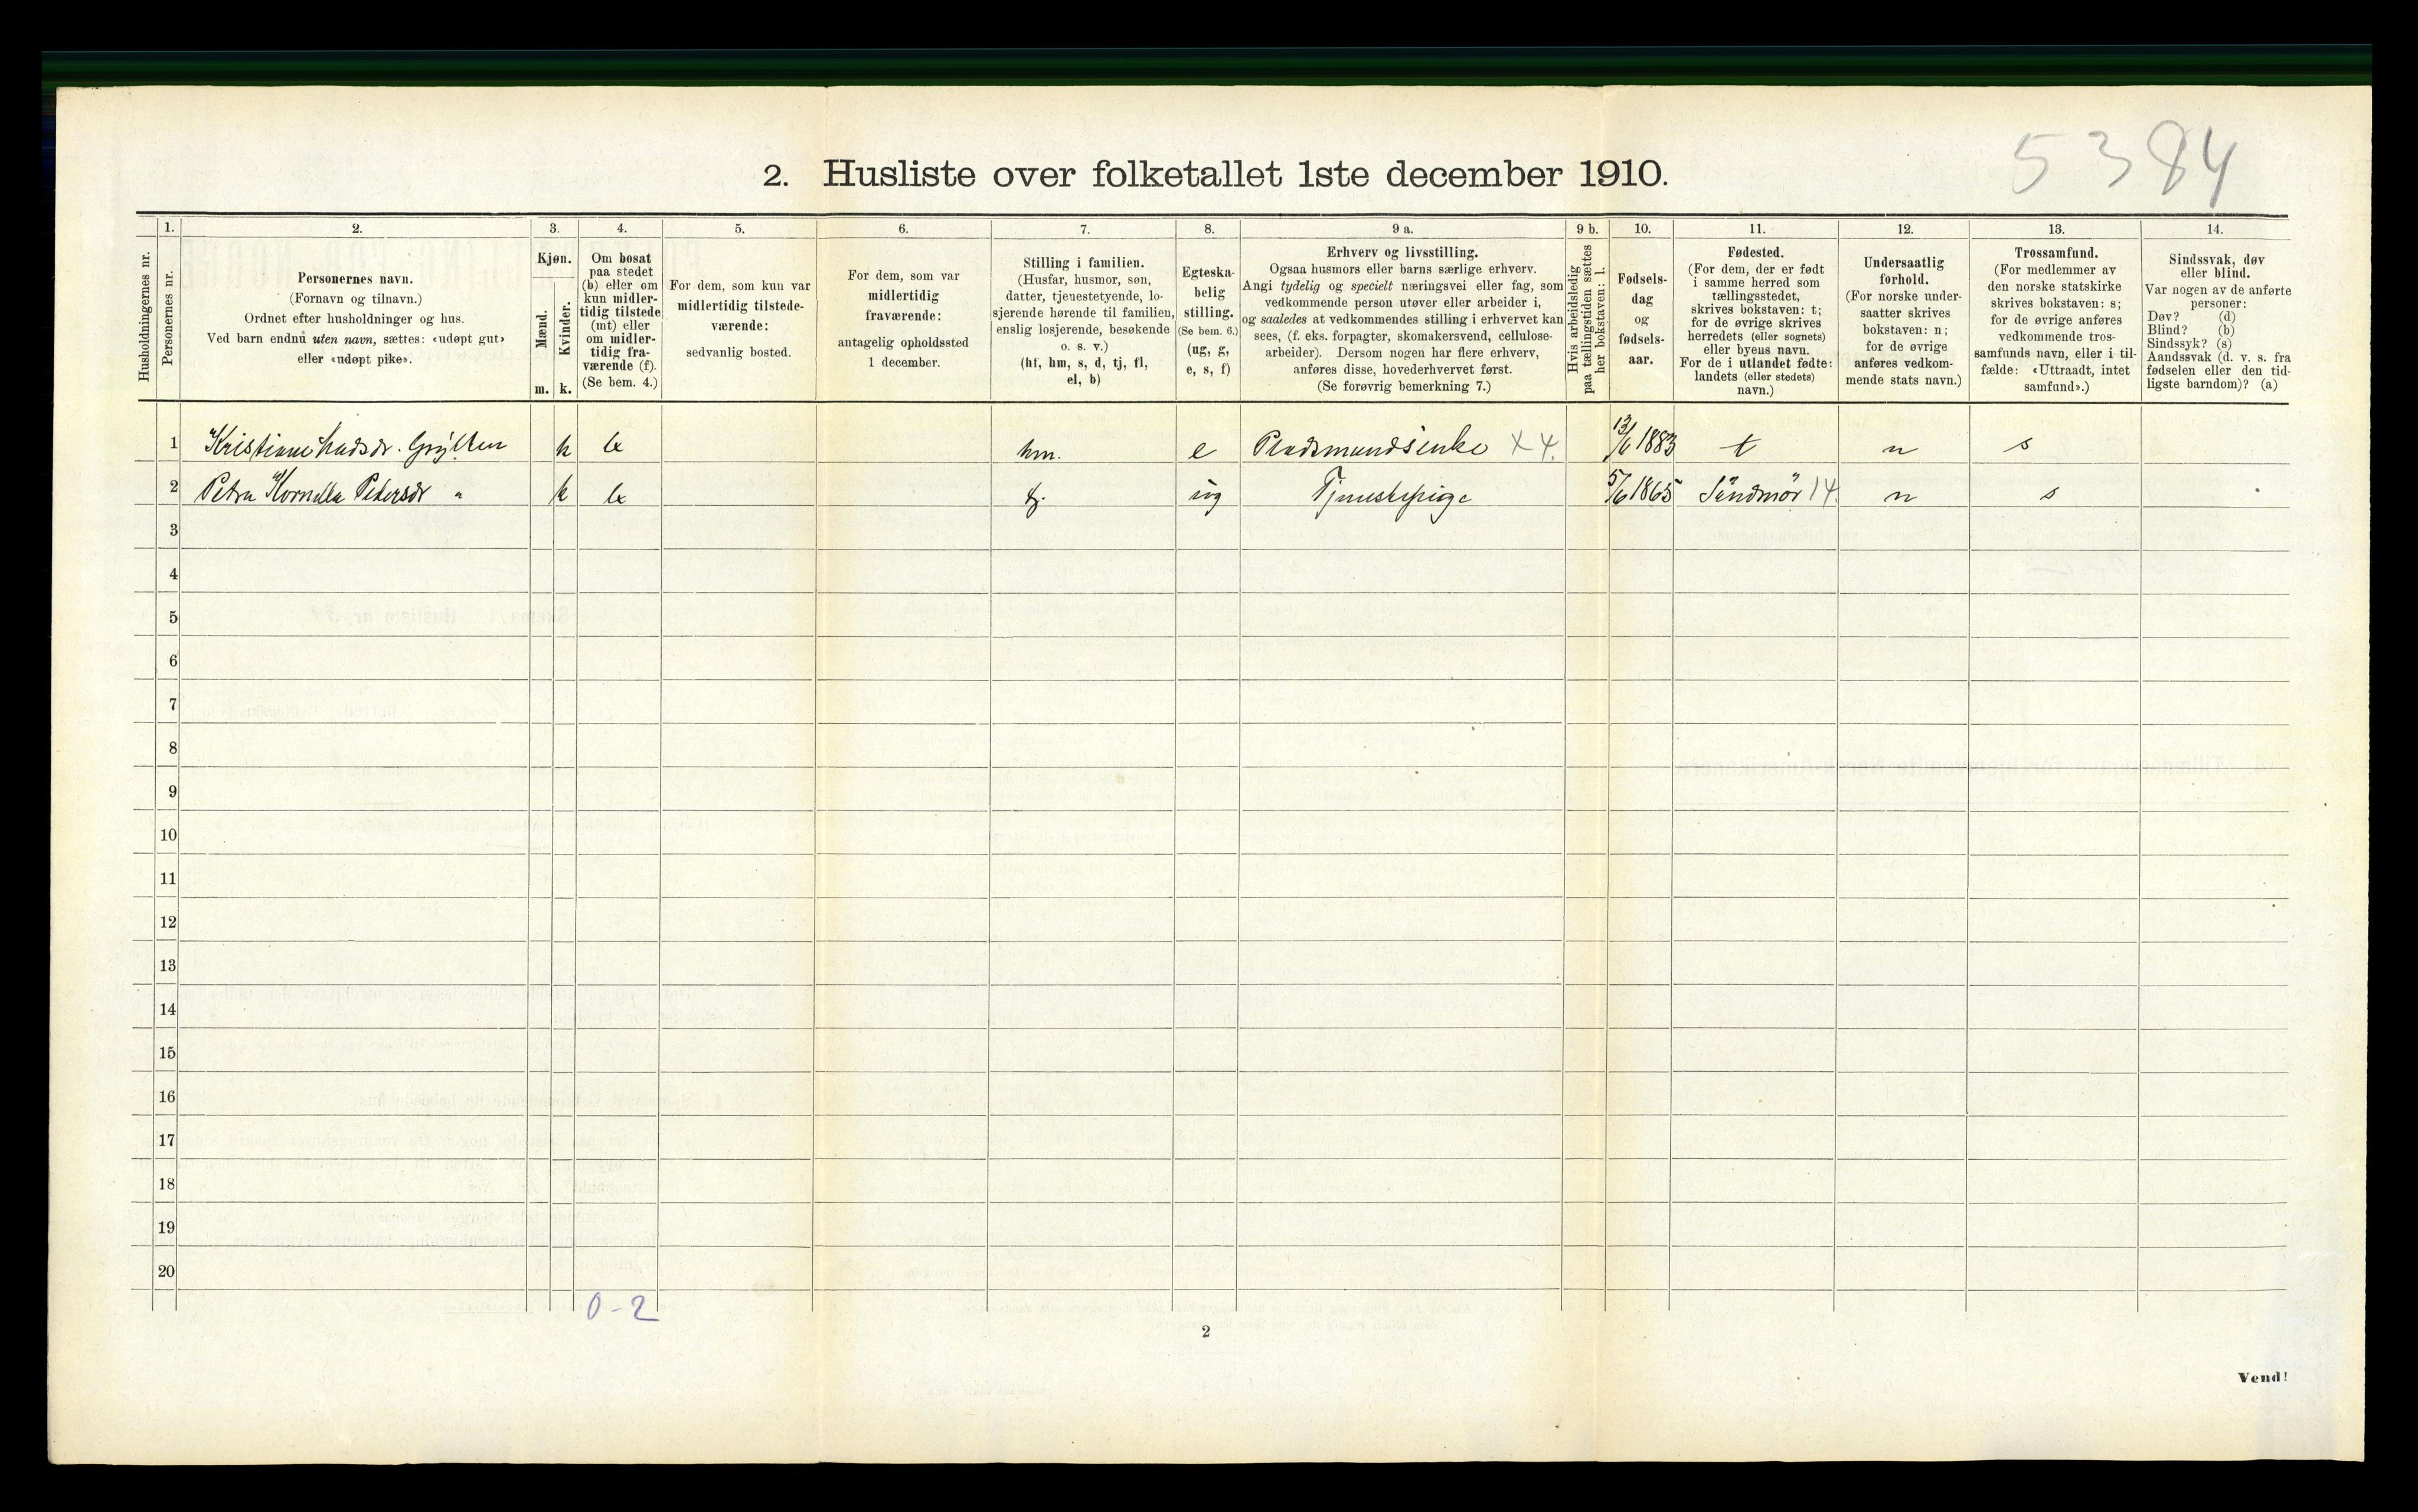 5384
2. Husliste over folketallet 1ste december 1910.
Husholdningernes nr.
1.
Personernes nr.
2.
Personernes navn.
(Fornavn og tilnavn.)
Ordnet efter husholdninger og hus.
Ved barn endnu uten navn, sættes: «udøpt gut»
eller «udøpt pike».
3.
Kjøn.
Mænd.
Kvinder.
m. k.
4.
Om bosat
paa stedet
(b) eller om
kun midler-
tidig tilstede
(mt) eller
om midler-
tidig fra-
værende (f).
(Se bem. 4.)
5.
For dem, som kun var
midlertidig tilstede-
værende:
sedvanlig bosted.
6.
For dem, som var
midlertidig
fraværende:
antagelig opholdssted
1 december.
7.
Stilling i familien.
(Husfar, husmor, søn,
datter, tjenestetyende, lo-
sjerende hørende til familien,
enslig losjerende, besøkende
o. s. v.)
(hf, hm, s, d, tj, fl,
el, b)
8.
Egteska-
belig
stilling.
(Se bem. 6.)
(ug, g,
e, s, f)
9 a.
Erhverv og livsstilling.
Ogsaa husmors eller barns særlige erhverv.
Angi tydelig og specielt næringsvei eller fag, som
vedkommende person utøver eller arbeider i,
og saaledes at vedkommendes stilling i erhvervet kan
sees, (f. eks. forpagter, skomakersvend, cellulose-
arbeider). Dersom nogen har flere erhverv,
anføres disse, hovederhvervet først.
(Se forøvrig bemerkning 7.)
9 b.
Hvis arbeidsledig
paa tællingstiden sættes
her bokstaven: l.
10.
Fødsels-
dag
og
fødsels-
aar.
11.
Fødested.
(For dem, der er født
i samme herred som
tællingsstedet,
skrives bokstaven: t;
for de øvrige skrives
herredets (eller sognets)
eller byens navn.
For de i utlandet fødte:
landets (eller stedets)
navn.)
12.
Undersaatlig
forhold.
(For norske under-
saatter skrives
bokstaven: n;
for de øvrige
anføres vedkom-
mende stats navn.)
13.
Trossamfund.
(For medlemmer av
den norske statskirke
skrives bokstaven: s;
for de øvrige anføres
vedkommende tros-
samfunds navn, eller i til-
fælde: «Uttraadt, intet
samfund».)
14.
Sindssvak, døv
eller blind.
Var nogen av de anførte
personer:
Døv? (d)
Blind? (b)
Sindssyk? (s)
Aandssvak (d. v. s. fra
fødselen eller den tid-
ligste barndom)? (a)
1 Kristiane Madsdr. Grytten k b hm. e Pladsmandsenke X 4. 13/6 1883 t n s
2 Petra Kornelia Petersdr " k b tj. ug Tjenestepige 5/6 1865 Søndmør 14. n s
3
4
5
6
7
8
9
10
11
12
13
14
15
16
17
18
19
20
0-2
2
Vend!